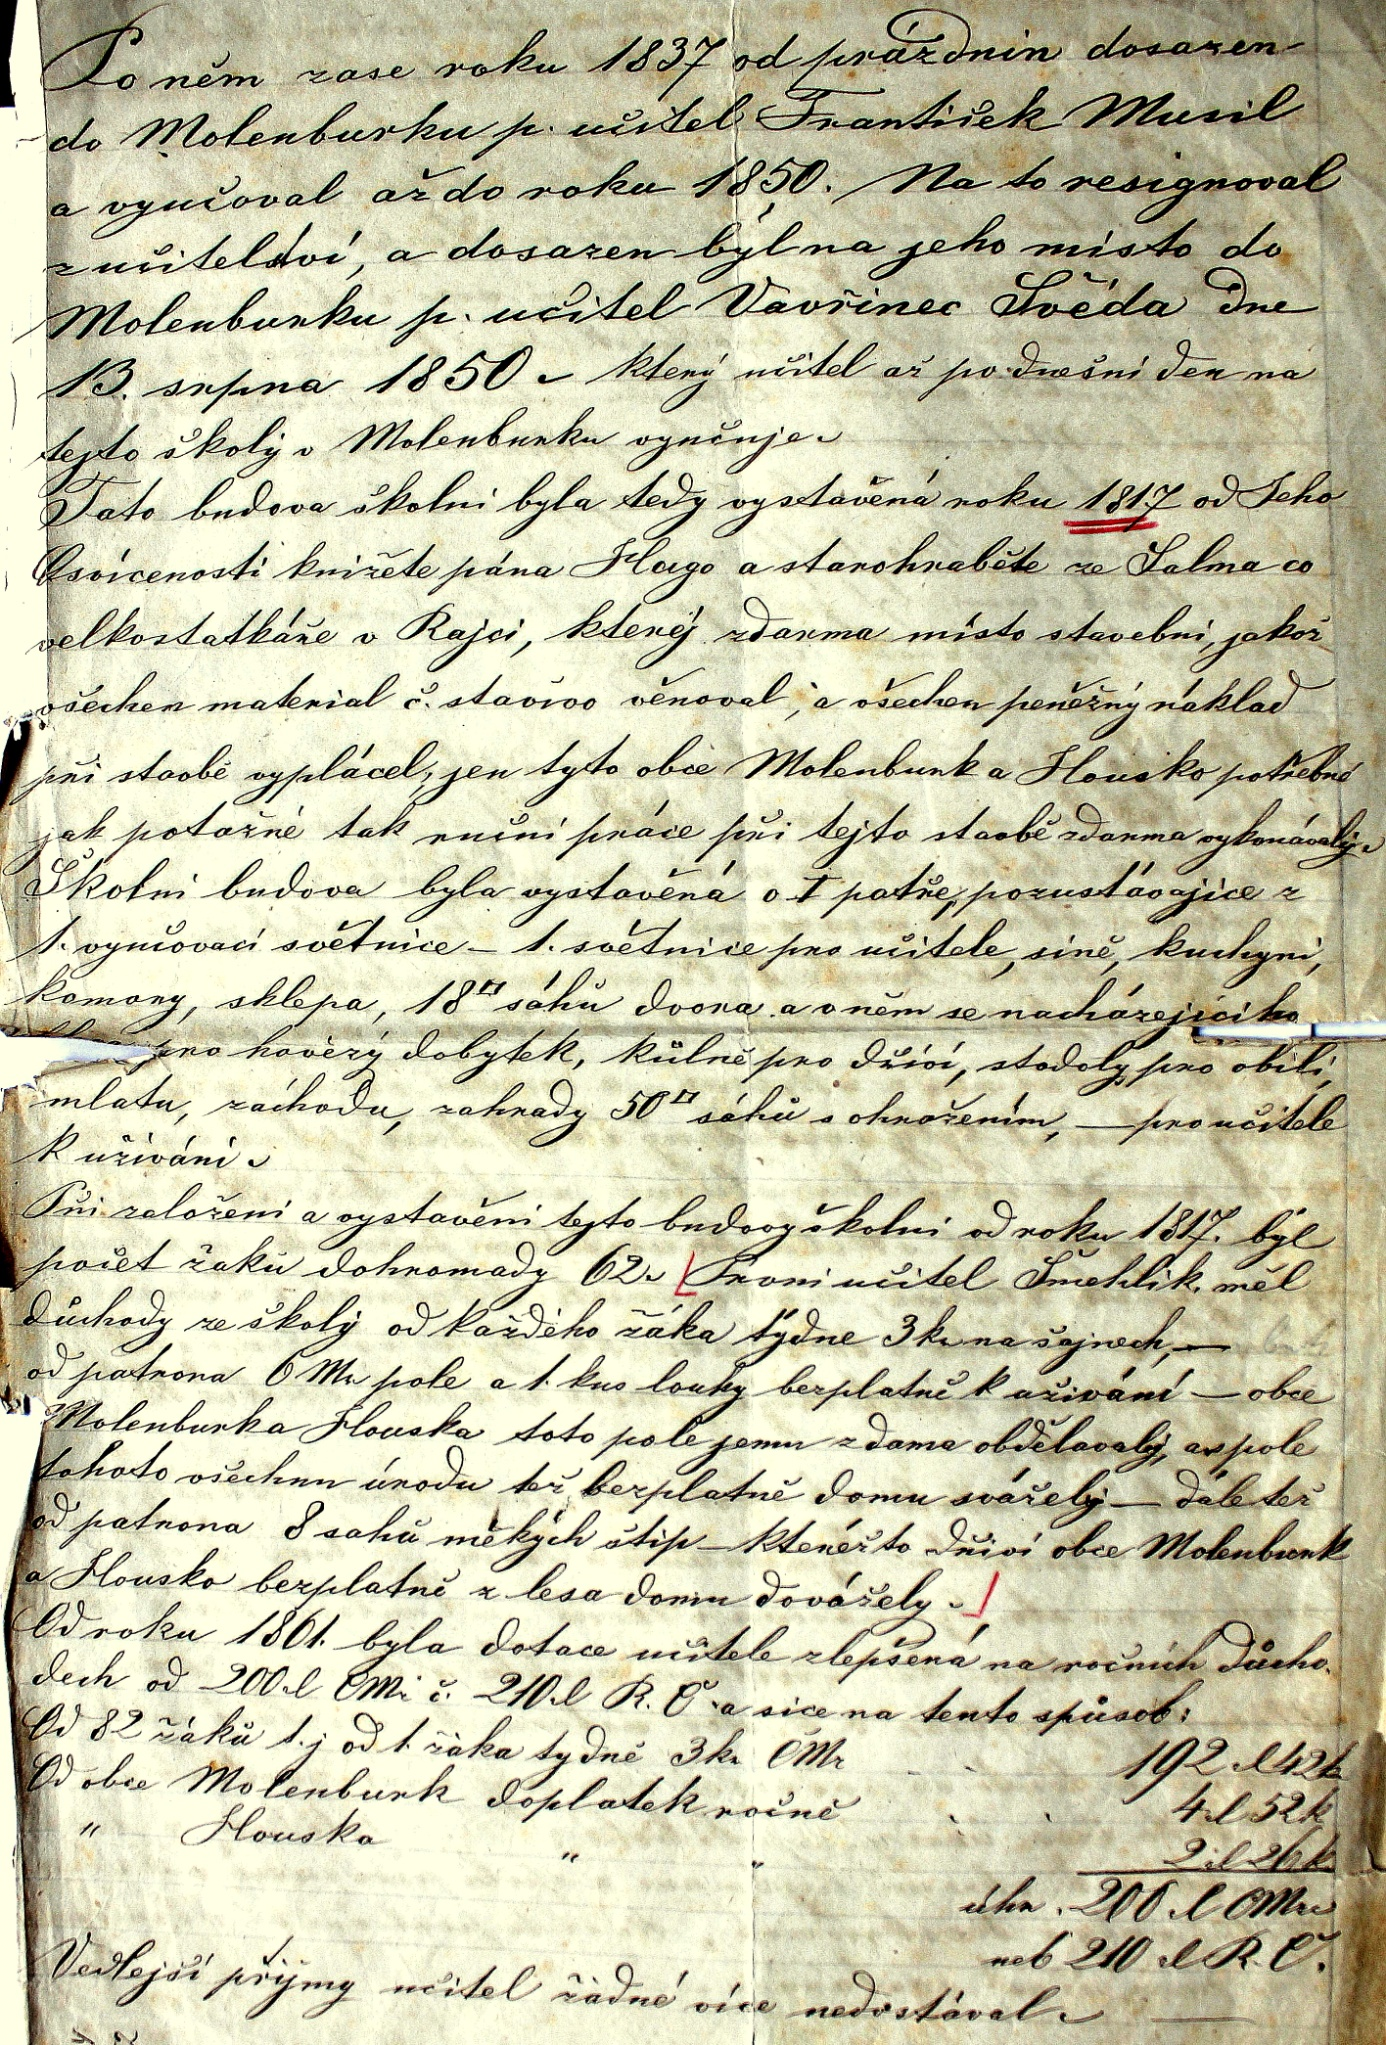 Po něm zase roku 1837 od prázdnin dosazen
do Molenburku p. učitel František Musil
a vyučoval až do roku 1850. Na to resignoval
z učitelství, a dosazen byl na jeho místo do
Molenburku p. učitel Vavřinec Švéda dne
13. srpna 1850. který učitel až po dnešní den na
tejto školy v Molenburku vyučuje.
Tato budova školní byla tedy vystavěná roku 1817 od Jeho
Osvícenosti knížete pána Hugo a starohraběte ze Salma co
velkostatkáře v Rajci, kterýj zdarma místo stavební, jakož
všechen material č. stavivo věnoval, a všechen peněžný náklad
při stavbě vyplácel, jen tyto obce Molenburk a Housko potřebné
jak potažné tak ruční práce při tejto stavbě zdarma vykonávalý.
Školní budova byla vystavěná o I patře, pozustávajíce z
1. vyučovací světnice – 1. světnice pro učitele, síně, kuchyni,
komory, sklepa, 18□ sáhů dvora a v něm se nacházejícího
pro hovězý dobytek, kůlně pro dříví, stodoly pro obilí,
mlatu, záchodu, zahrady 50□ sáhů s ohražením, — pro učitele
k užívání.
Při založení a vystavění tejto budovy školní od roku 1817. býl
počet žáků dohromady 62. První učitel Šmehlík, měl
důchody ze školý od každého žáka týdne 3 kr na šajnech, —
od patrona 6 Mr. pole a 1. kus louky bezplatně k užívání — obce
Molenburk a Houska toto pole jemu zdarma obdělavalý, a z pole
tohoto všechnu úrodu též bezplatně domu sváželý — dále též
od patrona 8 sahů měkých štip — kteréžto dříví obce Molenburk
a Housko bezplatně z lesa domu dovážely.
Od roku 1861. byla dotace učitele zlepšená na ročních důcho-
dech od 200 zl CMi č. 210 zl R. Č. a sice na tento spůsob:
Od 82 žáků t.j od 1. žáka tydně 3 kr CMr 192 zl 42 k
Od obce Molenburk doplatek ročně 4 zl 52 k
" Houska " " 2 zl 26 k
úhr. 200 zl CMr
neb 210 zl R. Č.
Vedlejší příjmy učitel žádné více nedostával. —